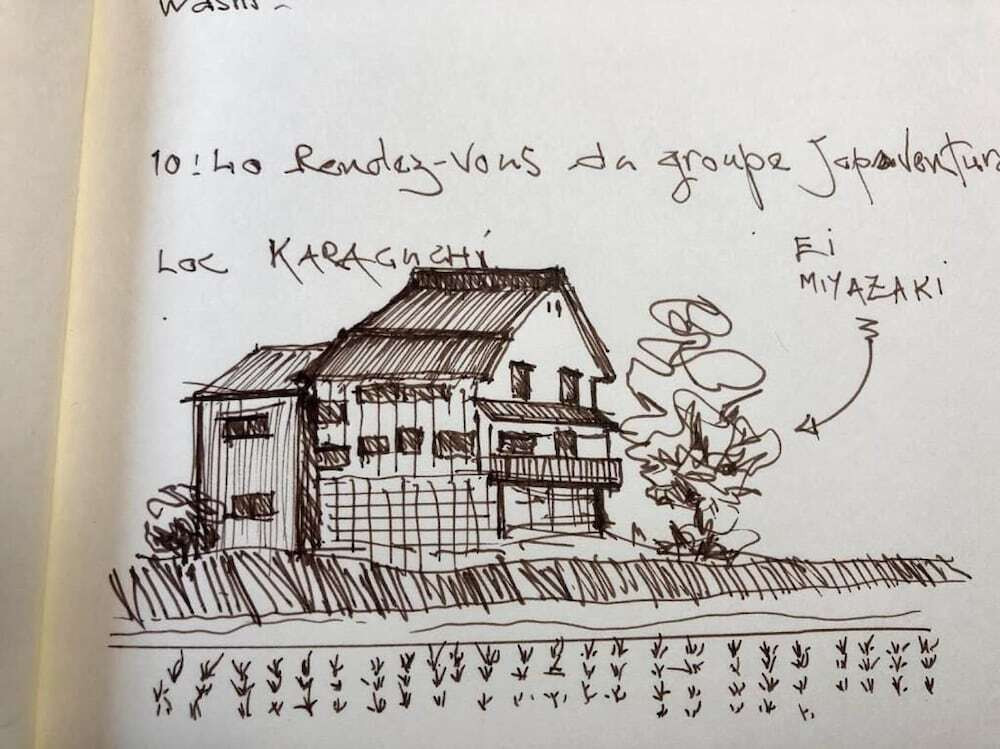 Washi -
10!40 Rendez-vous du groupe Japaventura
Loc KARAGUCHi
Ei
MiYAZAKi